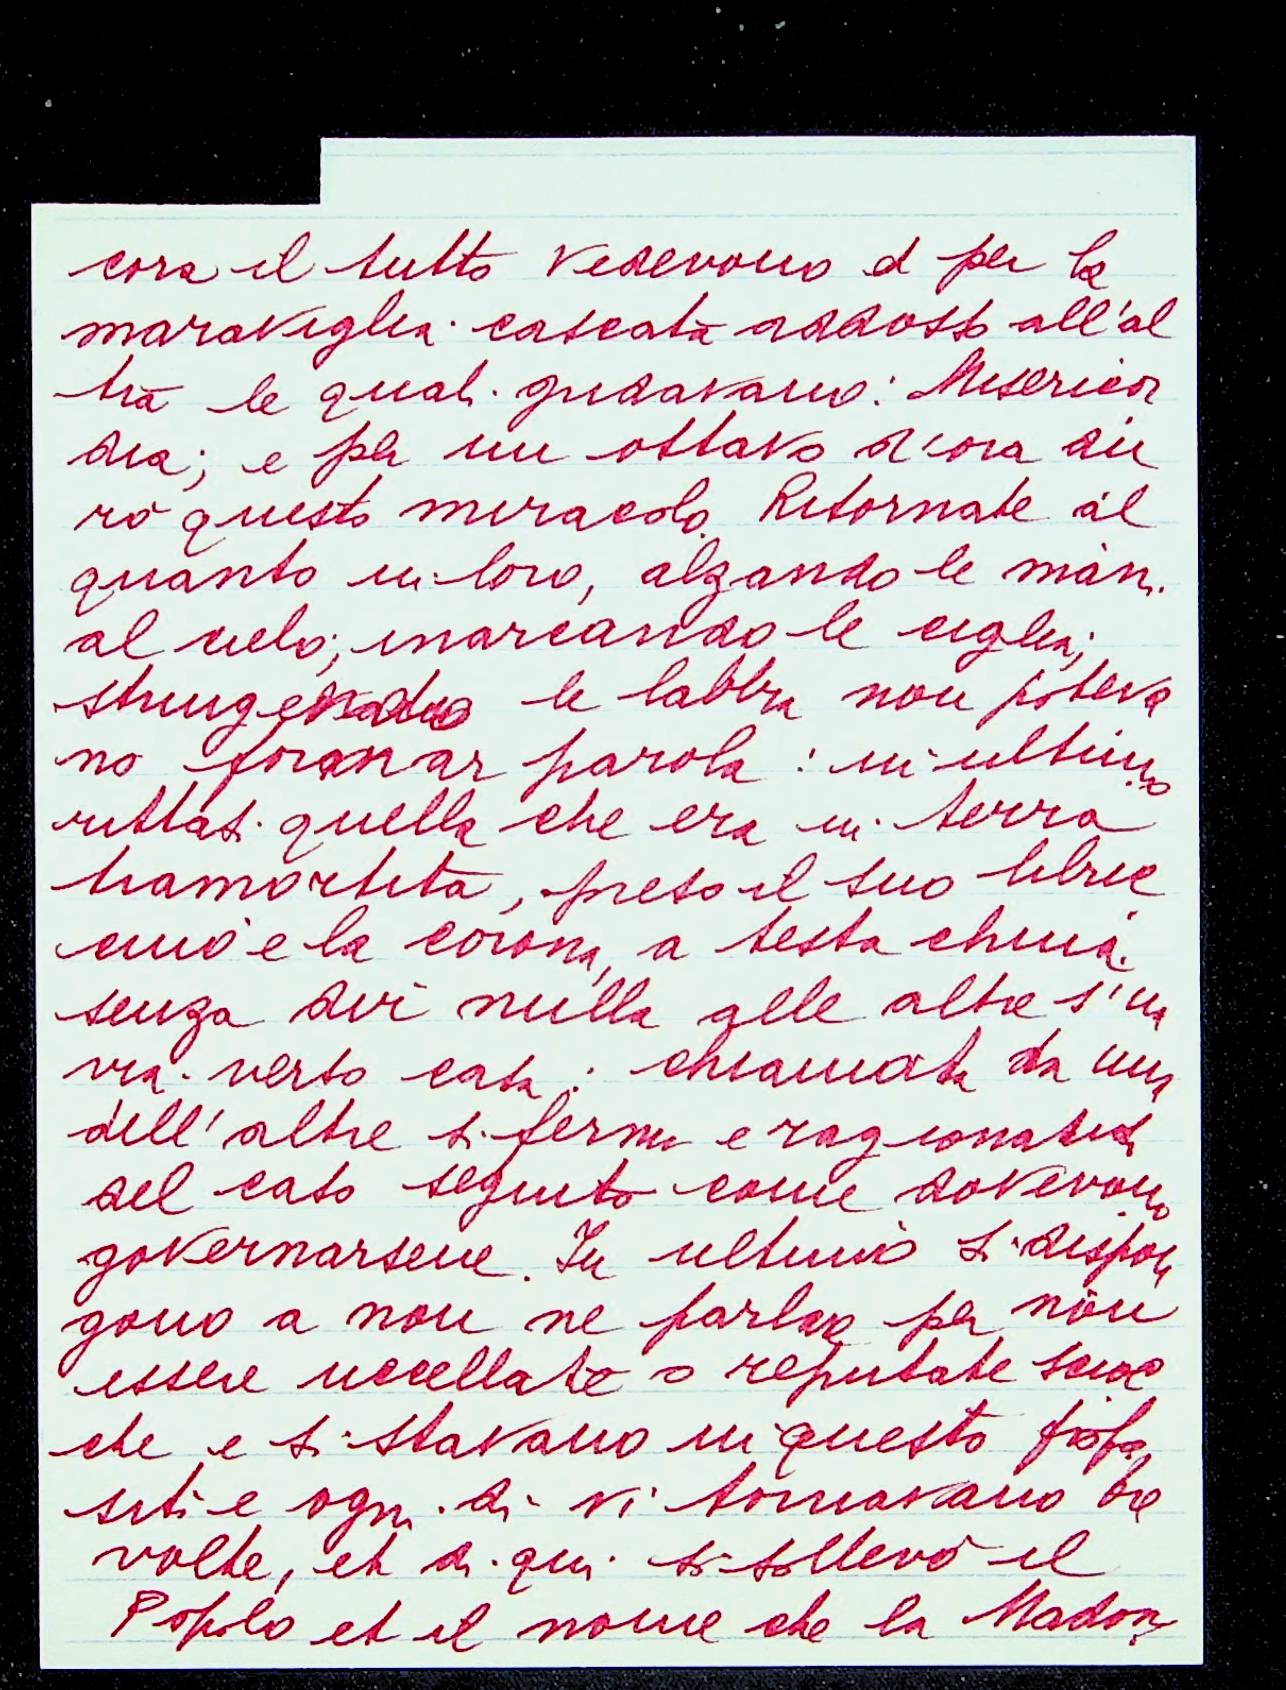 cora il tutto vedevono d per la
maraviglia cascata addosso all'al
tra le quali gridavano: Misericor
dia; e per un ottavo d'ora du
rò questo miracolo. Ritornate al
quanto in loro, alzando le mani
al cielo; inarcando le ciglia;
stringendo le labbra non poteva
no formar parola: in ultimo
rittasi quella che era in terra
tramortita, preso il suo libric
cino e la corona, a testa china
senza dir nulla alle altre s'in
via verso casa: chiamata da una
dell'altre si fermò e ragionatisi
del caso seguito come dovevono
governarsene. In ultimo si dispon
gono a non ne parlare per non
essere uccellate o reputate scioc
che e si stavano in questo propo
siti e ogni dì vi tornavano tre
volte, et di qui si sollevò il
Popolo et il nome che la Madon